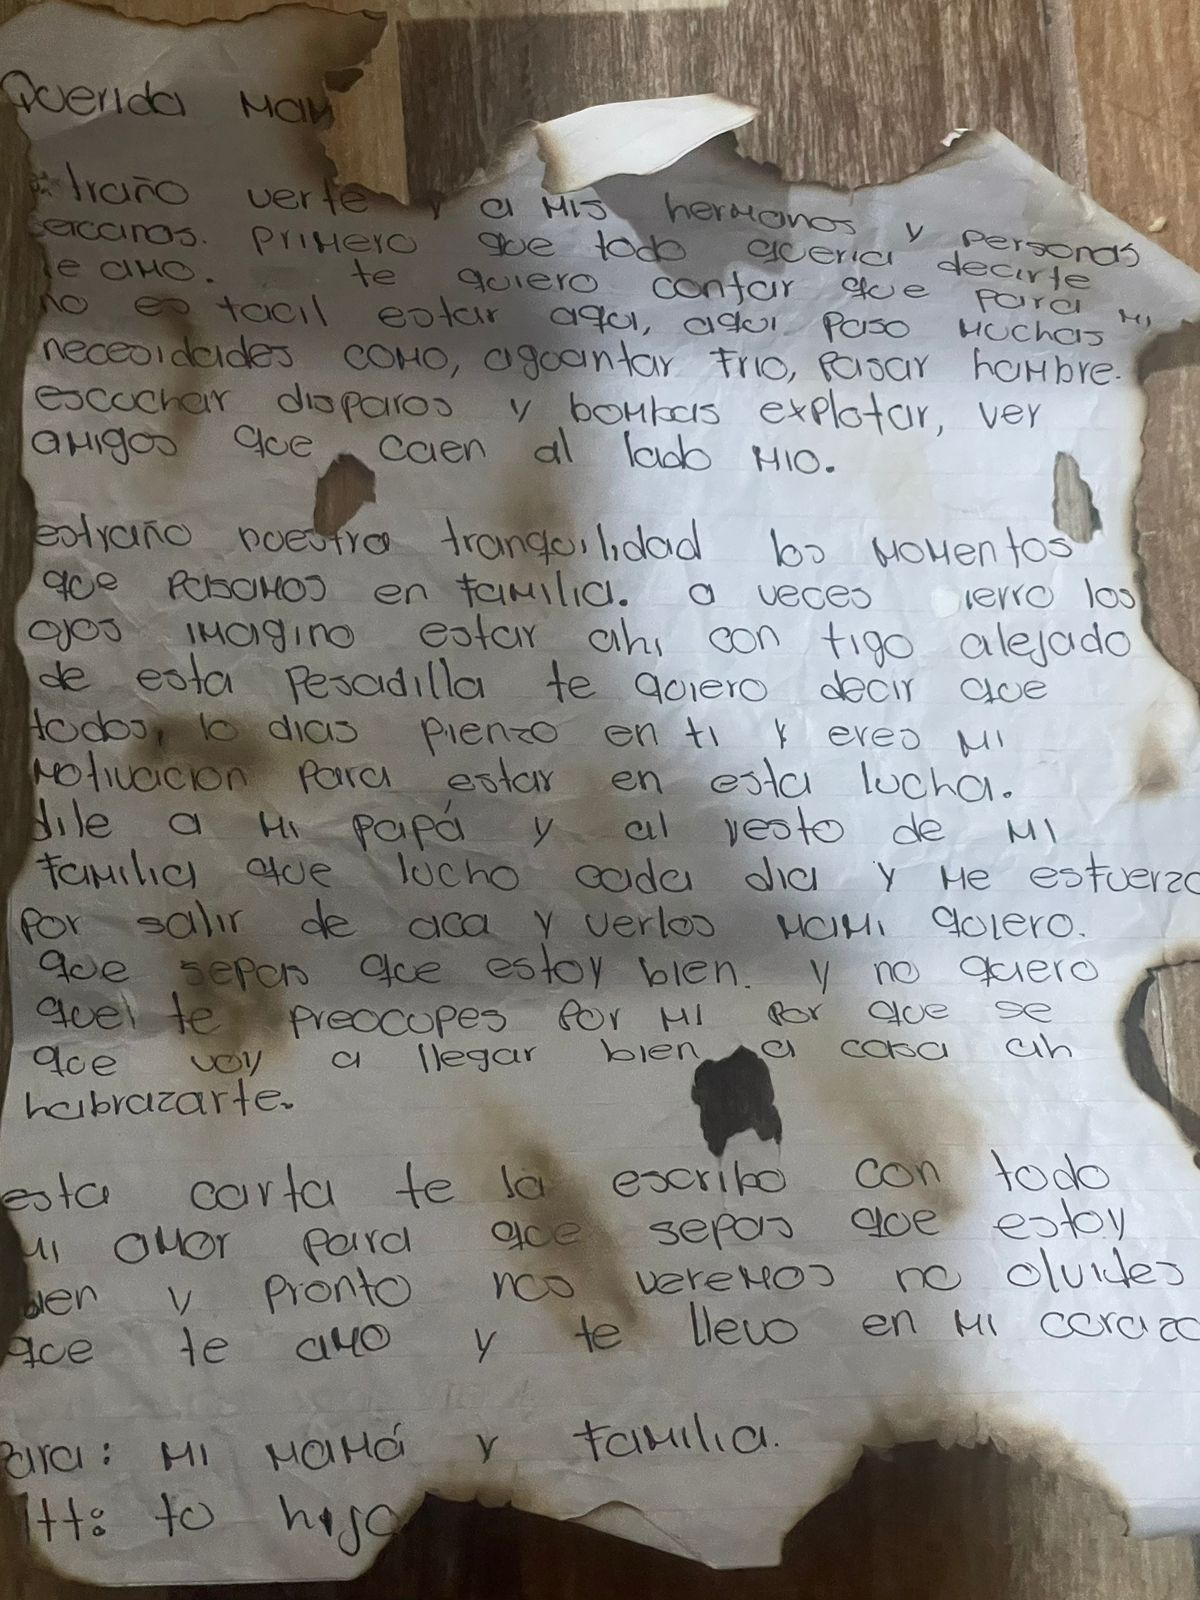 Querida Mam
traño verte y a mis hermanos y personas
ercanas. primero que todo queria decirte
te amo. te quiero contar que para mi
no es facil estar aqui, aqui paso muchas
necesidades como, aguantar frio, pasar hambre.
escuchar disparos y bombas explotar, ver
amigos que caen al lado mio.
estraño nuestra tranquilidad los momentos
que pasamos en familia. a veces ierro los
ojos imagino estar ahi con tigo alejado
de esta pesadilla te quiero decir que
todos, lo dias pienzo en ti y eres mi
motivacion para estar en esta lucha.
dile a mi papá y al resto de mi
familia que lucho cada dia y me esfuerzo
por salir de aca y verlos mami quiero.
que sepas que estoy bien. y no quiero
que te preocupes por mi por que se
que voy a llegar bien a casa ah
habrazarte.
esta carta te la escribo con todo
mi amor para que sepas que estoy
bien y pronto nos veremos no olvides
que te amo y te llevo en mi corazo
Para: mi mamá y familia.
Att: tu hijo